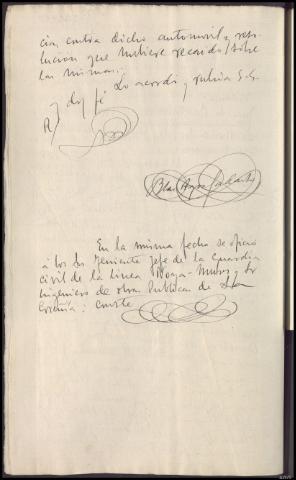 ción contra dicho automovil y reso-
lucion que hubiere recaido sobre
las mismas.
Lo acordó y rubrica S.Sª.
y doy fé
En la misma fecha se ofició
á los Sr Teniente Jefe de la Guardia
Civil de la linea Noya-Muros y Sr
Ingeniero de obras Publicas de La
Coruña: conste